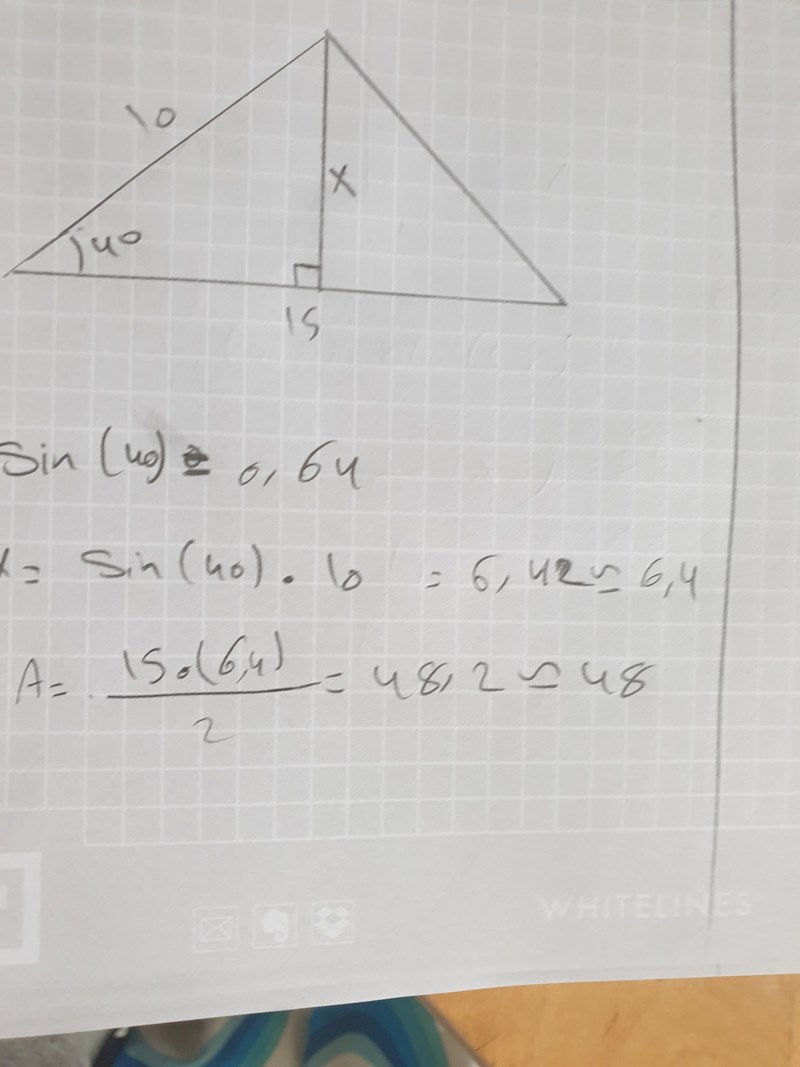 10
x
40
15
sin (40) = 0,64
x = sin(40) · 10 = 6,42 ≃ 6,4
A = 15·(6,4) / 2 = 48,2 ≃ 48
WHITELINES